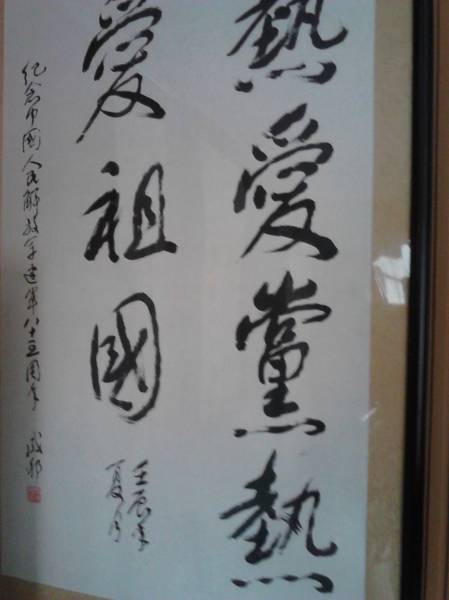 熱愛黨熱
愛祖國
壬辰年
夏月
纪念中國人民解放军建軍八十五周年